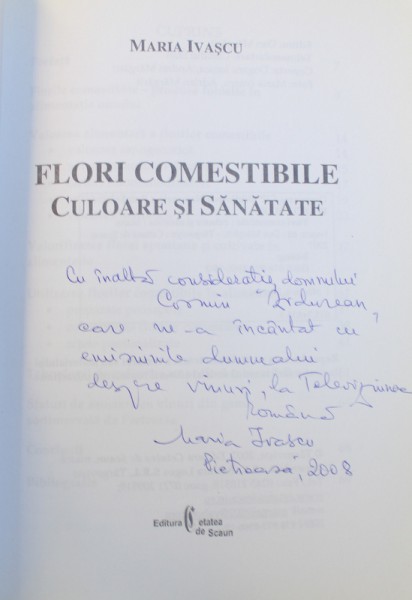 MARIA IVAŞCU
FLORI COMESTIBILE
CULOARE ŞI SĂNĂTATE
Cu înaltă considerație domnului
Cosmin
care ne-a încântat cu
emisiunile dumnealui
despre vinuri, la Televiziunea
Română
Maria Ivascu
Pietroasă, 2008
Editura Cetatea
de Scaun